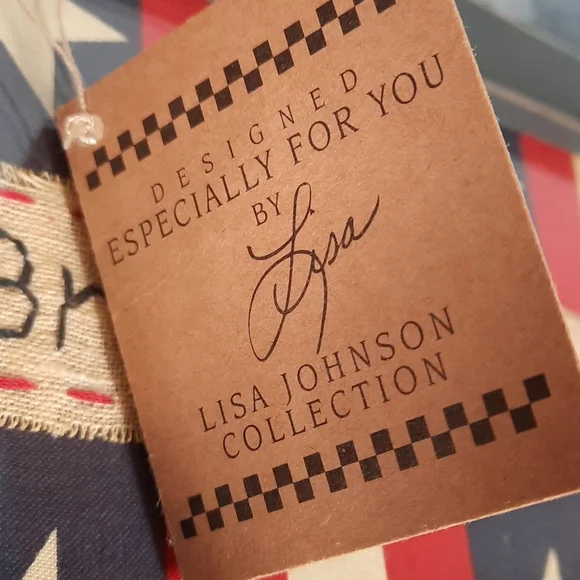 DESIGNED
ESPECIALLY FOR YOU
BY
Lisa
LISA JOHNSON
COLLECTION